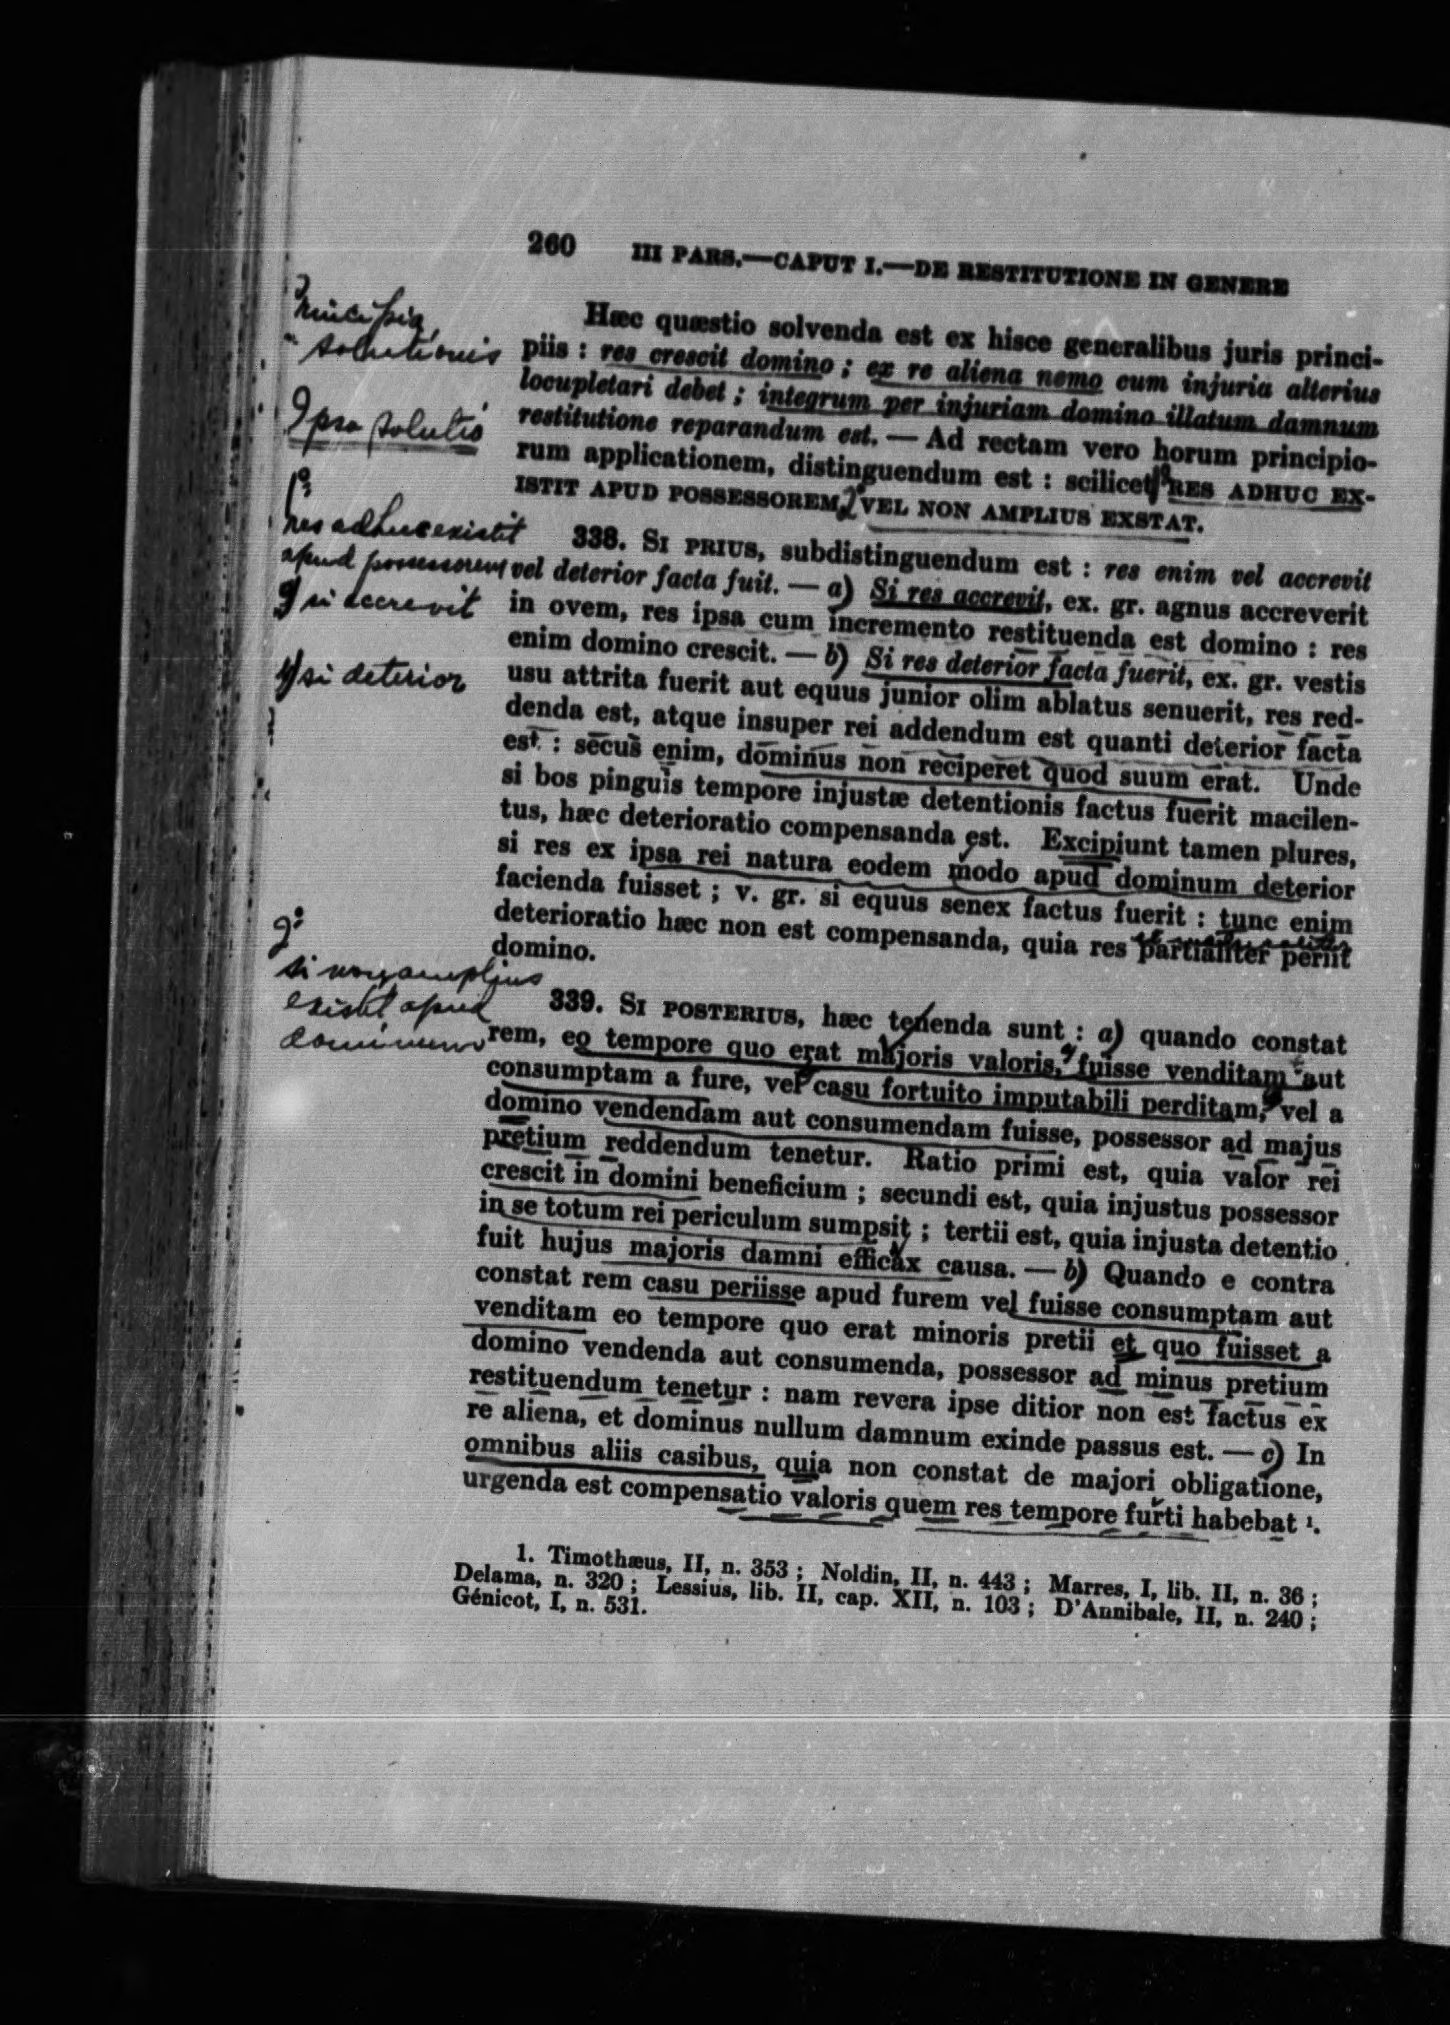 260 III PARS.—CAPUT I.—DE RESTITUTIONE IN GENERE
Principia
solutionis
Ipsa solutio
1º
res adhuc existit
apud possessorem
si accrevit
b) si deterior
2º
si non amplius
existit apud
dominum
Hæc quæstio solvenda est ex hisce generalibus juris princi-
piis : res crescit domino ; ex re aliena nemo cum injuria alterius
locupletari debet ; integrum per injuriam domino illatum damnum
restitutione reparandum est. — Ad rectam vero horum principio-
rum applicationem, distinguendum est : scilicet 1º RES ADHUC EX-
ISTIT APUD POSSESSOREM, 2º VEL NON AMPLIUS EXSTAT.
338. SI PRIUS, subdistinguendum est : res enim vel accrevit
vel deterior facta fuit. — a) Si res accrevit, ex. gr. agnus accreverit
in ovem, res ipsa cum incremento restituenda est domino : res
enim domino crescit. — b) Si res deterior facta fuerit, ex. gr. vestis
usu attrita fuerit aut equus junior olim ablatus senuerit, res red-
denda est, atque insuper rei addendum est quanti deterior facta
est : secus enim, dominus non reciperet quod suum erat. Unde
si bos pinguis tempore injustæ detentionis factus fuerit macilen-
tus, hæc deterioratio compensanda est. Excipiunt tamen plures,
si res ex ipsa rei natura eodem modo apud dominum deterior
facienda fuisset ; v. gr. si equus senex factus fuerit : tunc enim
deterioratio hæc non est compensanda, quia res partialiter periit
domino.
339. SI POSTERIUS, hæc tenenda sunt : a) quando constat
rem, eo tempore quo erat majoris valoris, fuisse venditam aut
consumptam a fure, vel casu fortuito imputabili perditam, vel a
domino vendendam aut consumendam fuisse, possessor ad majus
pretium reddendum tenetur. Ratio primi est, quia valor rei
crescit in domini beneficium ; secundi est, quia injustus possessor
in se totum rei periculum sumpsit ; tertii est, quia injusta detentio
fuit hujus majoris damni efficax causa. — b) Quando e contra
constat rem casu periisse apud furem vel fuisse consumptam aut
venditam eo tempore quo erat minoris pretii et quo fuisset a
domino vendenda aut consumenda, possessor ad minus pretium
restituendum tenetur : nam revera ipse ditior non est factus ex
re aliena, et dominus nullum damnum exinde passus est. — c) In
omnibus aliis casibus, quia non constat de majori obligatione,
urgenda est compensatio valoris quem res tempore furti habebat 1.
1. Timothæus, II, n. 353 ; Noldin, II, n. 443 ; Marres, I, lib. II, n. 36 ;
Delama, n. 320 ; Lessius, lib. II, cap. XII, n. 103 ; D'Annibale, II, n. 240 ;
Génicot, I, n. 531.